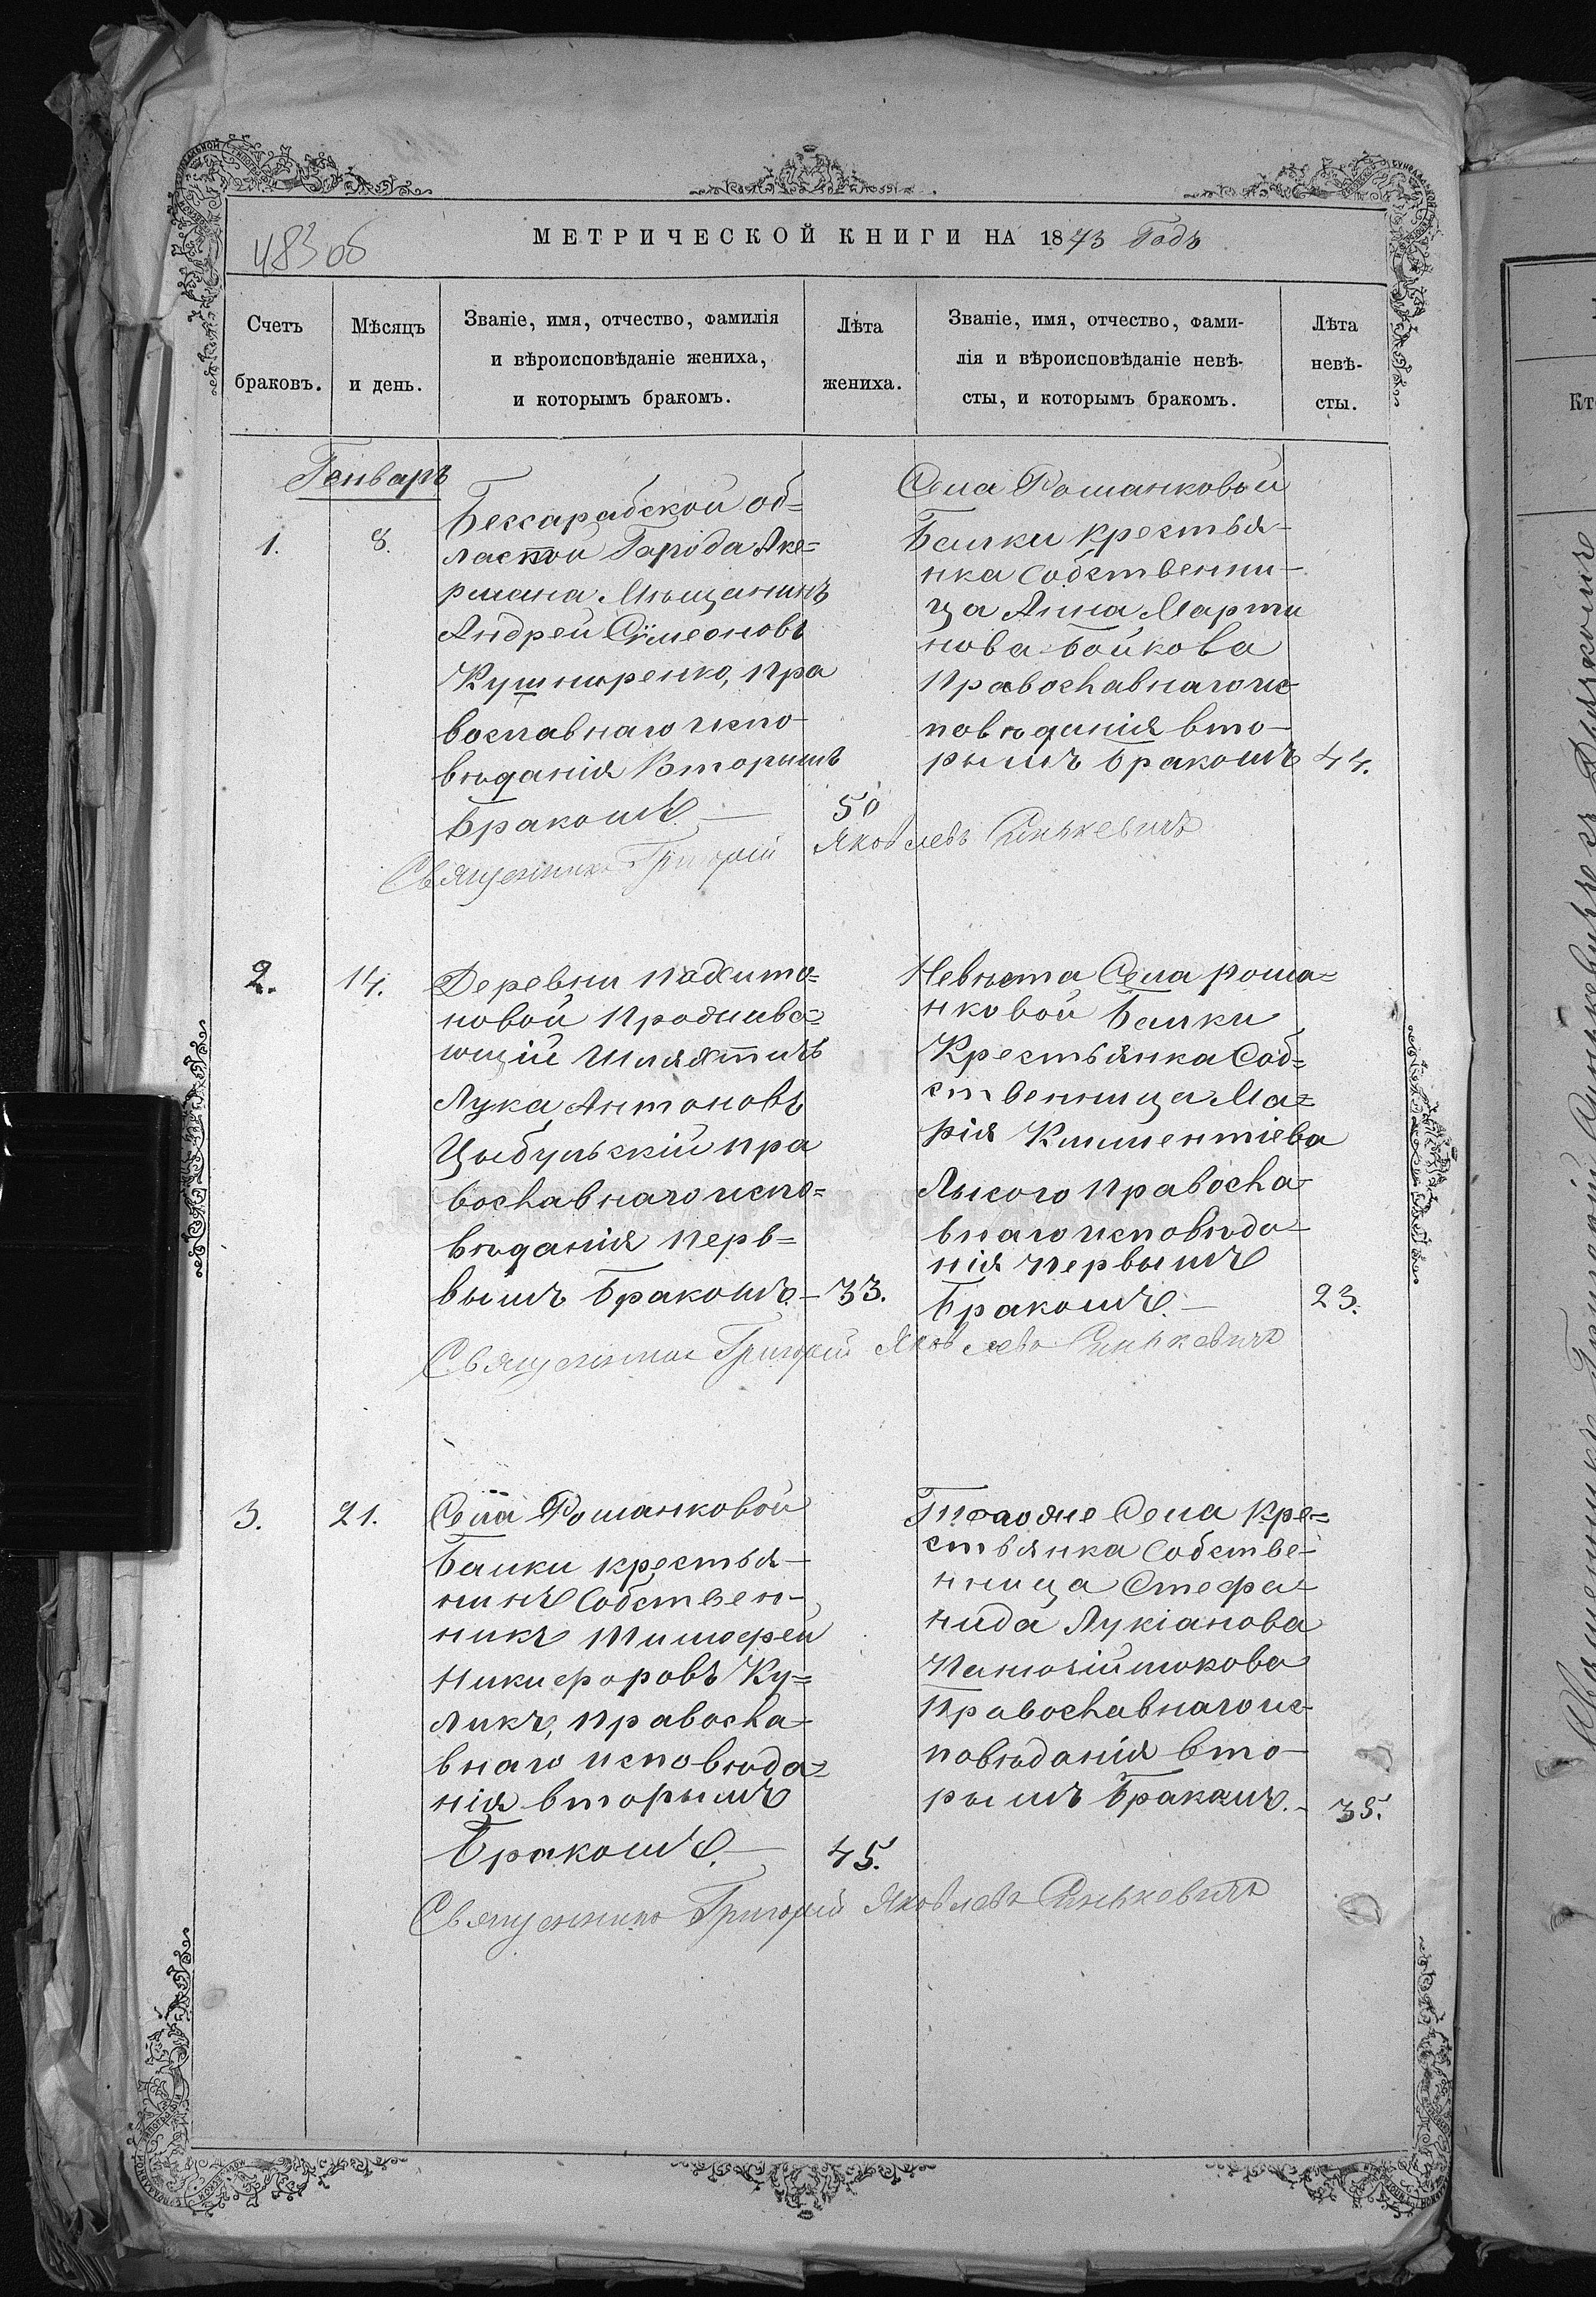 483 об
МЕТРИЧЕСКОЙ КНИГИ НА 1873 Годъ
Счетъ браковъ.
Мѣсяцъ и день.
Званіе, имя, отчество, фамилія
и вѣроисповѣданіе жениха,
и которымъ бракомъ.
Лѣта
жениха.
Званіе, имя, отчество, фами-
лія и вѣроисповѣданіе невѣ-
сты, и которымъ бракомъ.
Лѣта
невѣ-
сты.
Генваръ
1.
8.
Бессарабской об=
ластой Города Аке=
рмана Мѣщанинъ
Андрей Сѵмеоновъ
Кушниренко, пра
вославнаго испо-
вѣданія Вторымъ
Бракомъ.—
50
Села Романковой
Балки крестья-
нка Собственни-
ца Анна Марти
нова Бойкова
Православнаго ис-
повѣданія вто-
рымъ бракомъ
44.
Священникъ Григорій Яковлевъ Синькевичъ
2.
14.
Деревни Пахито=
новой Прожива=
ющій Шляхтичъ
Лука Антоновъ
Цыбульскій пра
вославнаго испо=
вѣданія перв=
вымъ бракомъ.—
33.
Невѣста Села Рома=
нковой Балки
Крестьянка Соб=
ственница Ма=
рія Климентіева
Лысого Правосла-
внаго исповѣда-
нія первымъ
Бракомъ.—
23.
Священникъ Григорій Яковлевъ Синькевичъ
3.
21.
Села Романковой
Балки крестья-
нинъ Собствен-
никъ Тимофей
Никифоровъ Ку=
ликъ, Правосла-
внаго исповѣда=
нія вторымъ
Бракомъ.—
45.
Тогоже Села Кре=
стьянка Собстве-
нница Стефа-
нида Лукіанова
Православнаго ис-
повѣданія вто-
рымъ Бракамъ.-
35.
Священникъ Григорій Яковлевъ Синькевичъ